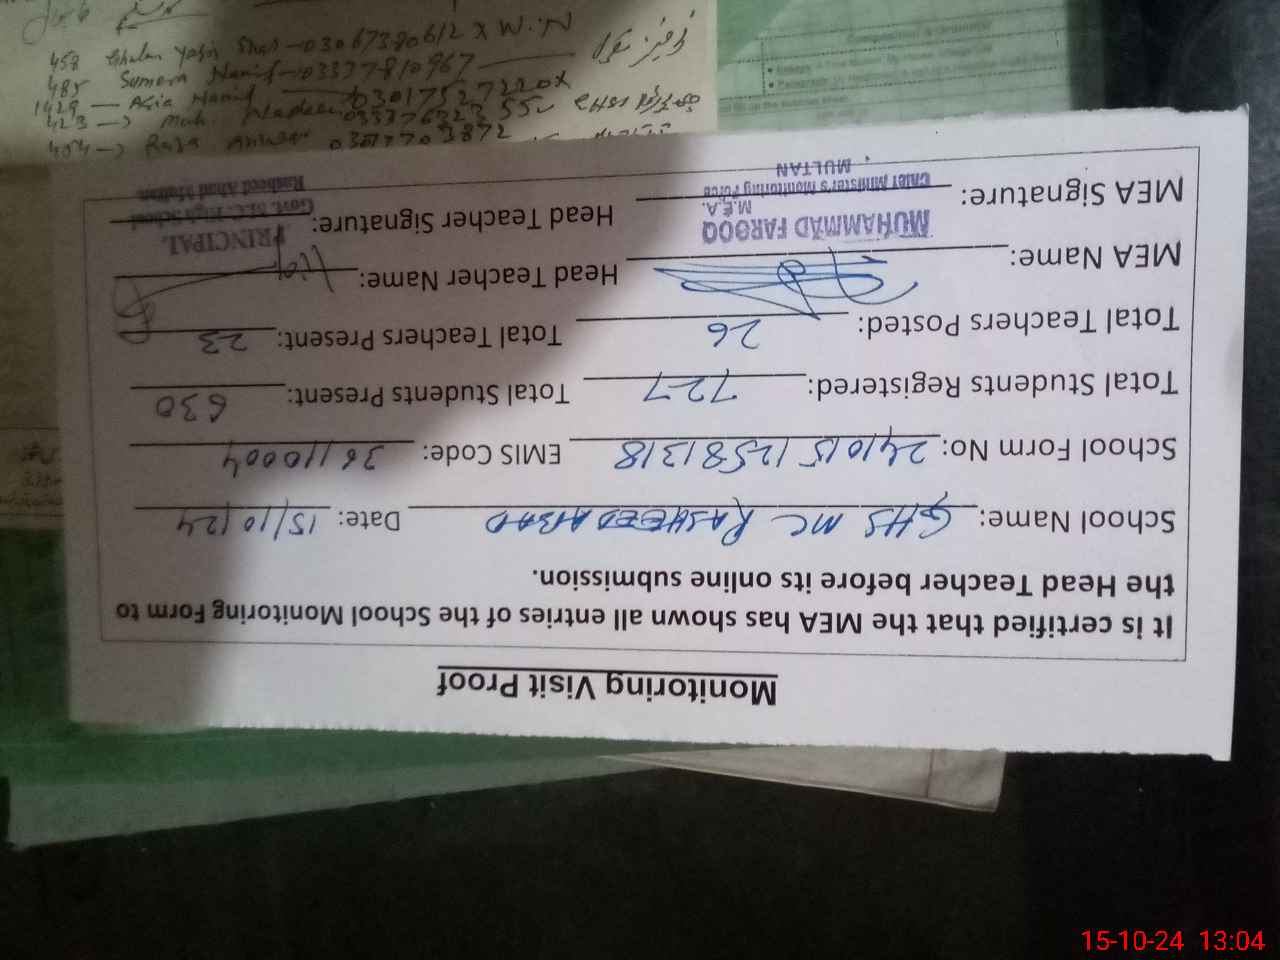 Monitoring Visit Proof
It is certified that the MEA has shown all entries of the School Monitoring Form to
the Head Teacher before its online submission.
School Name: GHS MC RASHEEDABAD Date: 15/10/24
School Form No: 241015/2581318 EMIS Code: 36110004
Total Students Registered: 727 Total Students Present: 630
Total Teachers Posted: 26 Total Teachers Present: 23
MEA Name: Head Teacher Name:
MUHAMMAD FAROOQ PRINCIPAL
M.E.A. Govt. M.C. High School
MEA Signature: Head Teacher Signature:
Chief Minister's Monitoring Force Rasheed Abad Multan
MULTAN
458 Yasir Shah - 03067380612 x W.N
485 Sumera Hanif - 03337810967
1429 - Asia Hanif 03017527220x
423 -> Nadeem
-> Raza
15-10-24 13:04